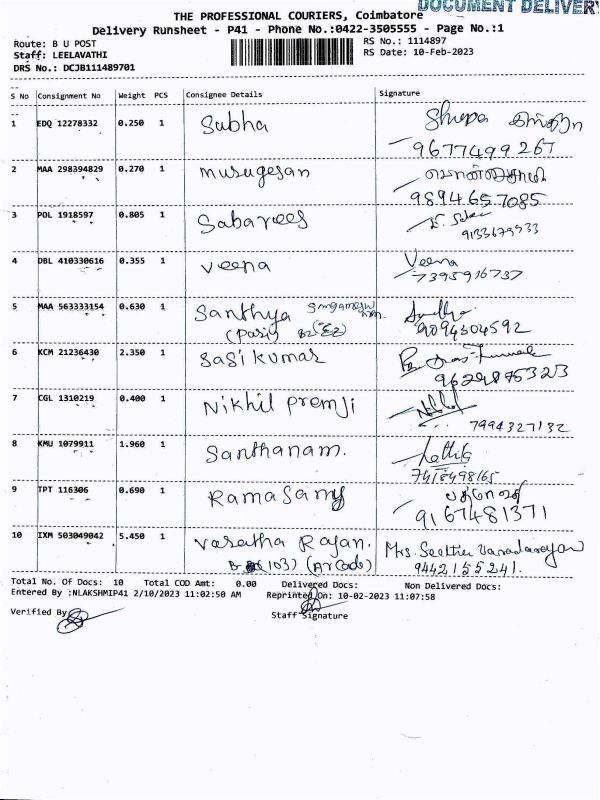 DOCUMENT DELIVERY
THE PROFESSIONAL COURIERS, Coimbatore
Delivery Runsheet - P41 - Phone No.:0422-3505555 - Page No.:1
Route: B U POST RS No.: 1114897
Staff: LEELAVATHI RS Date: 10-Feb-2023
DRS No.: DCJB111489701
S No Consignment No Weight PCS Consignee Details Signature
1 EDQ 12278332 0.250 1 Subha
9677499267
2 MAA 298394829 0.270 1 Murugesan
9894657085
3 POL 1918597 0.805 1 Sabarees
9133679933
4 DBL 410330616 0.355 1 Veena Veena
7395916737
5 MAA 563333154 0.630 1 Santhya
9094304592
6 KCM 21236430 2.350 1 Sasi kumar
9629875323
7 CGL 1310219 0.400 1 Nikhil Premji
7994327132
8 KMU 1079911 1.960 1 Santhanam.
7418498165
9 TPT 116306 0.690 1 Ramasamy
9167481371
10 IXM 503049042 5.450 1 Varatha Rajan. Mrs.
(103) (Arcade) 9442155241.
Total No. Of Docs: 10 Total COD Amt: 0.00 Delivered Docs: Non Delivered Docs:
Entered By :NLAKSHMIP41 2/10/2023 11:02:50 AM Reprinted On: 10-02-2023 11:07:58
Verified By
Staff Signature